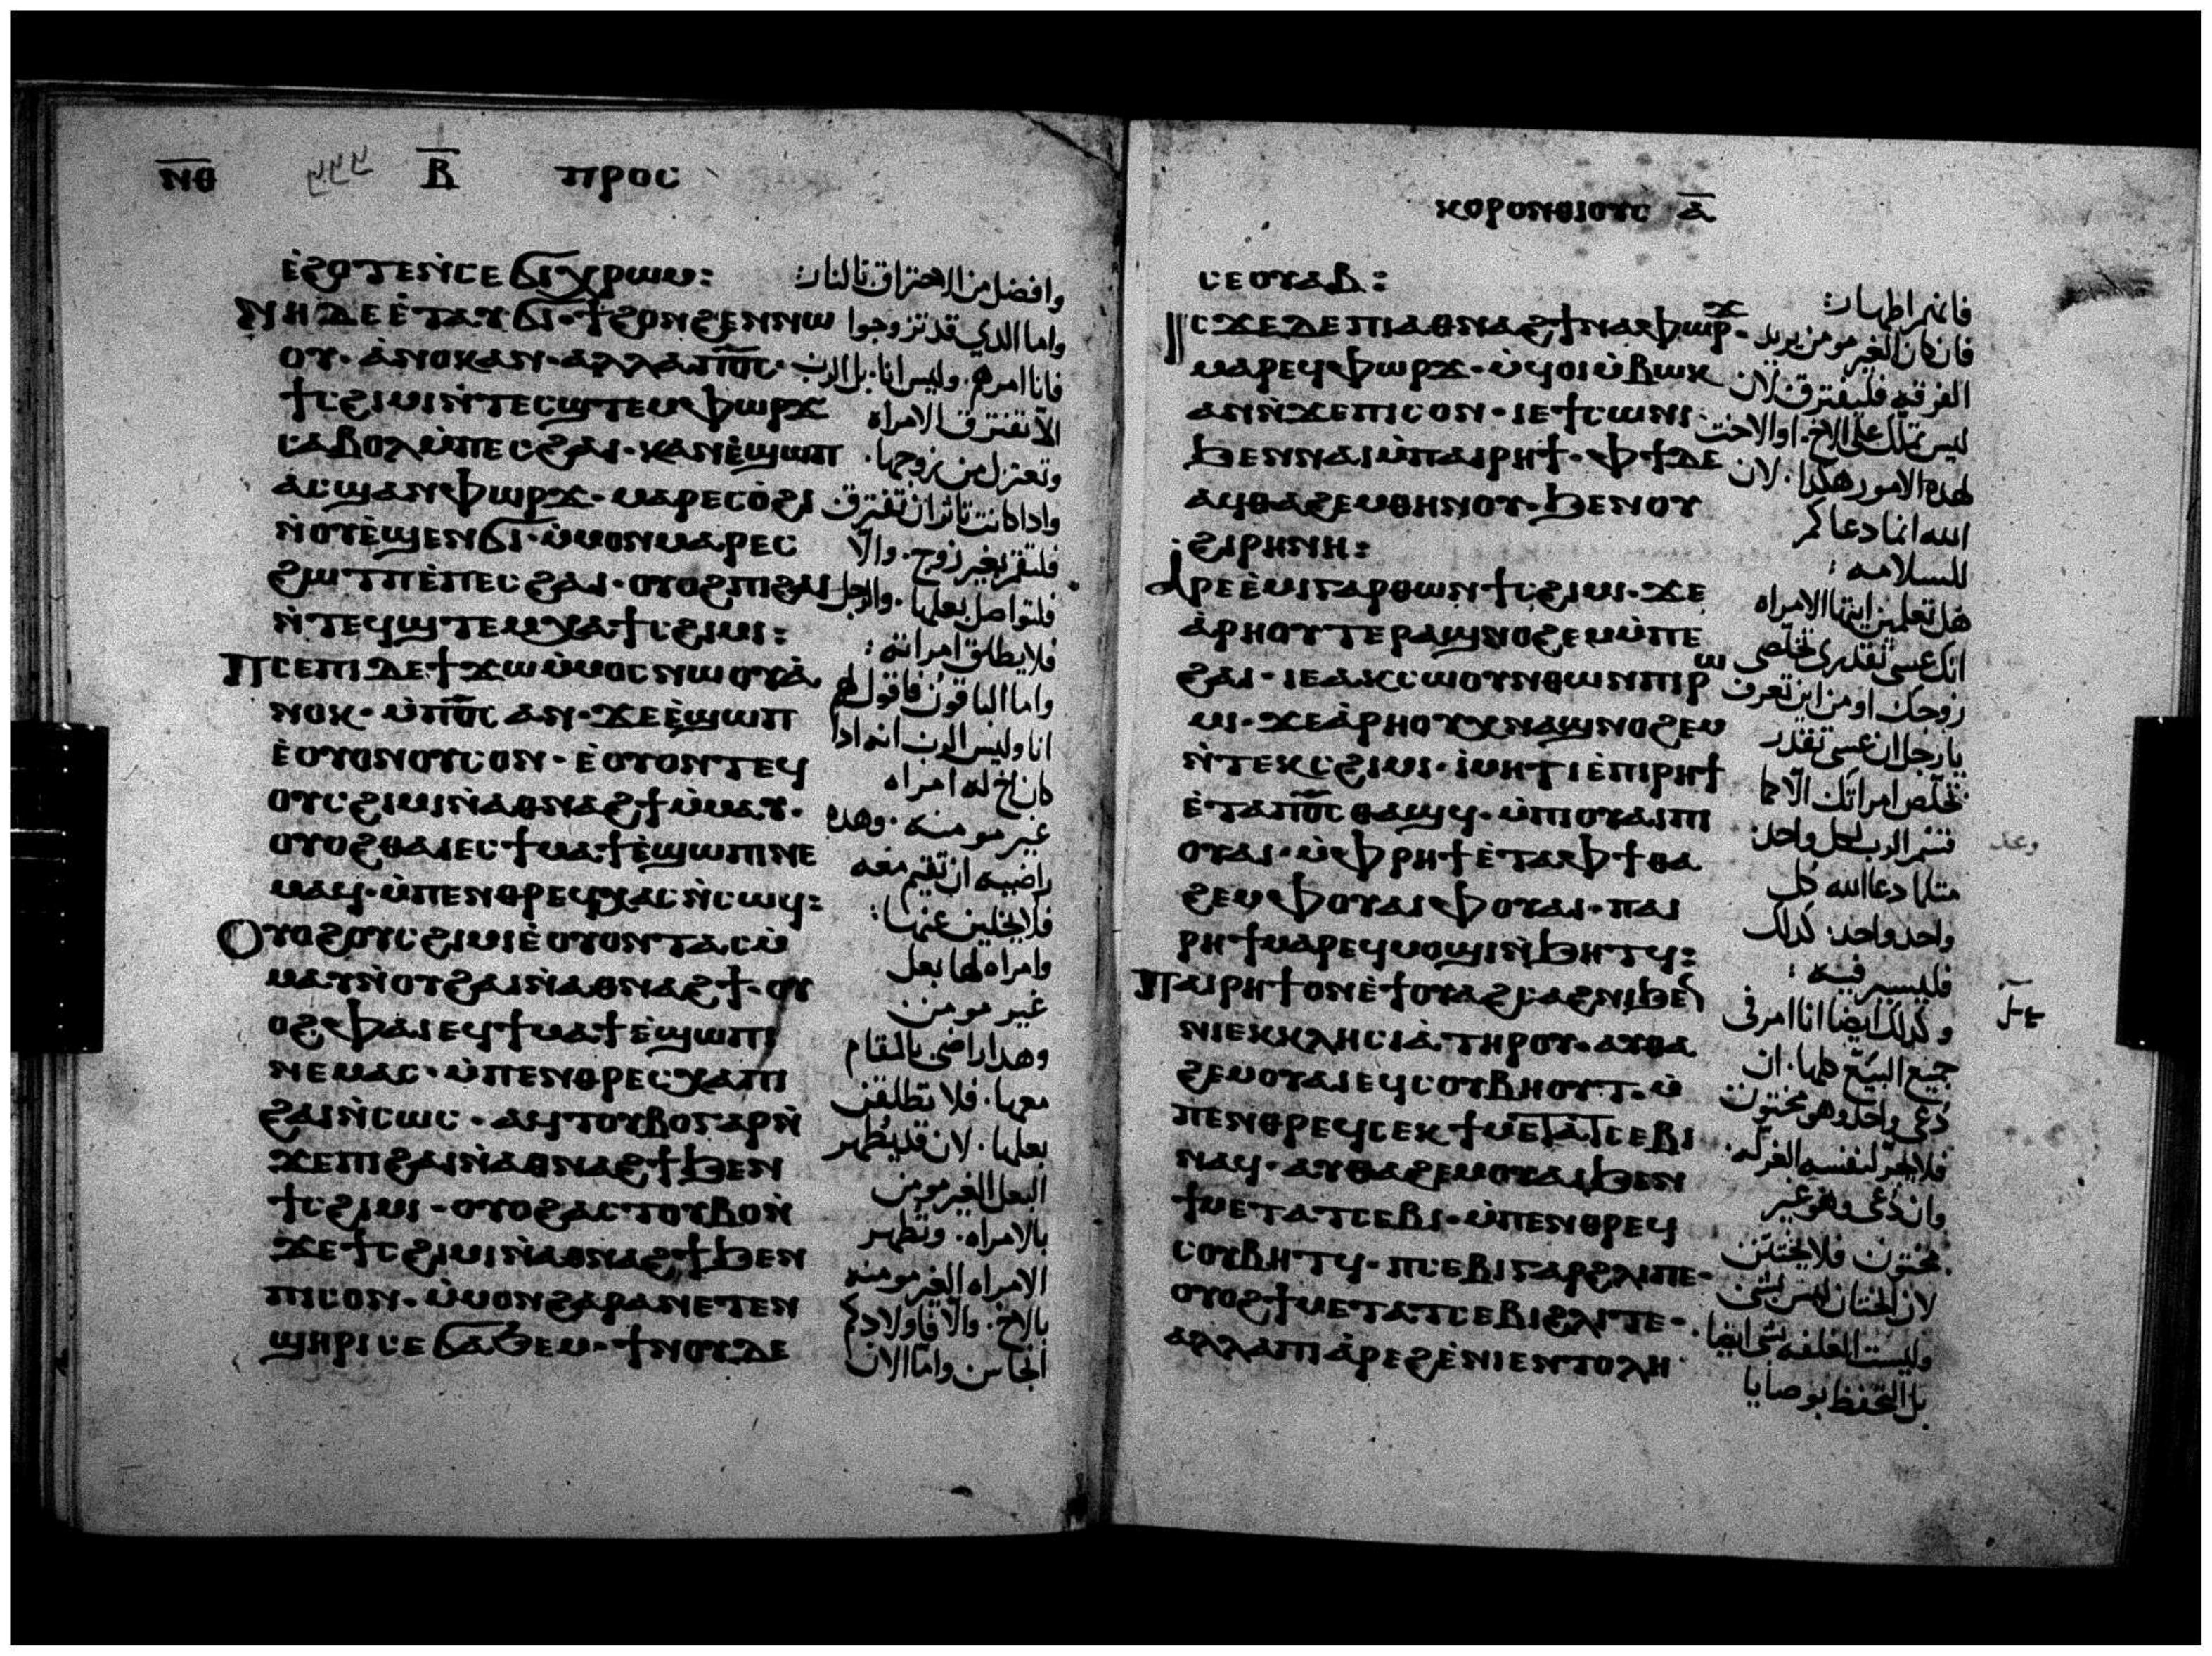 ⲛⲑ
ⲃ
ⲡⲣⲟⲥ
ⲉ̀ϩⲟⲧⲉⲛ̀ⲥⲉϭⲓⲭⲣⲱⲙ:
ⲛⲏⲇⲉⲉ̀ⲧⲁⲩϭⲓ·ϯϩⲟⲛϩⲉⲛⲛⲱ
ⲟⲩ·ⲁ̀ⲛⲟⲕⲁⲛ·ⲁⲗⲗⲁⲡⲟ̅ⲥ̅·
ϯⲥϩⲓⲙⲓⲛ̀ⲧⲉⲥϣⲧⲉⲙⲫⲱⲣϫ
ⲥⲁⲃⲟⲗⲙ̀ⲡⲉⲥϩⲁⲓ·ⲕⲁⲛⲉ̀ϣⲱⲡ
ⲁⲥϣⲁⲛⲫⲱⲣϫ·ⲙⲁⲣⲉⲥⲟ̀ϩⲓ
ⲛ̀ⲟⲩⲉ̀ϣⲉⲛϭⲓ·ⲙ̀ⲙⲟⲛⲙⲁⲣⲉⲥ
ϩⲱⲧⲡⲉ̀ⲡⲉⲥϩⲁⲓ·ⲟⲩⲟϩⲡⲓϩⲁⲓ
ⲛ̀ⲧⲉϥϣⲧⲉⲙⲭⲁϯⲥϩⲓⲙⲓ:
ⲡⲥⲉⲡⲓⲇⲉϯϫⲱⲙ̀ⲙⲟⲥⲛⲱⲟⲩⲁ̀
ⲛⲟⲕ·ⲙ̀ⲡⲟ̅ⲥ̅ⲁⲛ·ϫⲉⲉ̀ϣⲱⲡ
ⲉ̀ⲟⲩⲟⲛⲟⲩⲥⲟⲛ·ⲉ̀ⲟⲩⲟⲛⲧⲉϥ
ⲟⲩⲥϩⲓⲙⲓⲛ̀ⲁⲑⲛⲁϩϯⲙ̀ⲙⲁⲩ·
ⲟⲩⲟϩⲑⲁⲓⲉⲥϯⲙⲁϯⲉ̀ϣⲱⲡⲓⲛⲉ
ⲙⲁϥ·ⲙ̀ⲡⲉⲛⲑⲣⲉϥⲭⲁⲥⲛ̀ⲥⲱϥ:
ⲟⲩⲟϩⲟⲩⲥϩⲓⲙⲓⲉ̀ⲟⲩⲟⲛⲧⲁⲥⲙ̀
ⲙⲁⲩⲛ̀ⲟⲩϩⲁⲓⲛ̀ⲁⲑⲛⲁϩϯ·ⲟⲩ
ⲟϩⲫⲁⲓⲉϥϯⲙⲁϯⲉ̀ϣⲱⲡⲓ
ⲛⲉⲙⲁⲥ·ⲙ̀ⲡⲉⲛⲑⲣⲉⲥⲭⲁⲡⲓ
ϩⲁⲓⲛ̀ⲥⲱⲥ·ⲁϥⲧⲟⲩⲃⲟⲅⲁⲣⲛ̀
ϫⲉⲡⲓϩⲁⲓⲛ̀ⲁⲑⲛⲁϩϯϧⲉⲛ
ϯⲥϩⲓⲙⲓ·ⲟⲩⲟϩⲁⲥⲧⲟⲩⲃⲟⲛ̀
ϫⲉϯⲥϩⲓⲙⲓⲛ̀ⲁⲑⲛⲁϩϯϧⲉⲛ
ⲡⲓⲥⲟⲛ·ⲙ̀ⲙⲟⲛϩⲁⲣⲁⲛⲉⲧⲉⲛ
ϣⲏⲣⲓⲥⲉϭⲁϧⲉⲙ·ϯⲛⲟⲩⲇⲉ
وافضل من الاحتراق بالنار:
واما الذي قد تزوجوا
فانا امرهم. وليس انا. بل الرب
الّا تفترق الامراه
وتعتزل من زوجها.
وادا كانت تاثر ان تفترق
فلتقم بغير زوج. والّا
فلتواصل بعلها. والرجل
فلا يطلق امراته:
واما الباقون فاقول لهم
انا وليس الرب انه ادا
كان اخ له امراه
غير مومنه. وهده
راضيه ان تقيم معه
فلا يخلين عنها:
وامراه لها بعل
غير مومن
وهدا راضى بالمقام
معها. فلا تطلقن
بعلها. لان قد يطهر
البعل الغير مومن
بالامراه. وتطهر
الامراه الغير مومنه
بالاخ. والّا فاولادكم
انجاس واما الان
ⲕⲟⲣⲟⲛⲑⲓⲟⲩⲥ ⲁ̅
ⲥⲉⲟⲩⲁⲃ:
ⲓⲥϫⲉⲇⲉⲡⲓⲁⲑⲛⲁϩϯⲛⲁⲫⲱⲣϫ·
ⲙⲁⲣⲉϥⲫⲱⲣϫ·ⲙ̀ϥⲟⲓⲙ̀ⲃⲱⲕ
ⲁⲛⲛ̀ϫⲉⲡⲓⲥⲟⲛ·ⲓⲉϯⲥⲱⲛⲓ·
ϧⲉⲛⲛⲁⲓⲙ̀ⲡⲁⲓⲣⲏϯ·ⲫϯⲇⲉ
ⲁϥⲑⲁϩⲉⲙⲑⲏⲛⲟⲩ·ϧⲉⲛⲟⲩ
ϩⲓⲣⲏⲛⲏ:
ⲁⲣⲉⲉ̀ⲙⲓⲅⲁⲣⲑⲱⲛϯⲥϩⲓⲙⲓ·ϫⲉ
ⲁ̀ⲣⲏⲟⲩⲧⲉⲣⲁϣⲛⲟϩⲉⲙⲙ̀ⲡⲉ
ϩⲁⲓ·ⲓⲉⲁⲕⲥⲱⲟⲩⲛⲑⲱⲛⲡⲓⲣⲱ
ⲙⲓ·ϫⲉⲁ̀ⲣⲏⲟⲩⲭⲛⲁϣⲛⲟϩⲉⲙ
ⲛ̀ⲧⲉⲕⲥϩⲓⲙⲓ·ⲓⲙⲏϯⲓⲉ̀ⲡⲓⲣⲏϯ
ⲉ̀ⲧⲁⲡⲟ̅ⲥ̅ⲑⲁϣϥ·ⲙ̀ⲡⲓⲟⲩⲁⲓⲡⲓ
ⲟⲩⲁⲓ·ⲙ̀ⲫⲣⲏϯⲉ̀ⲧⲁⲫϯⲑⲁ
ϩⲉⲙⲫⲟⲩⲁⲓⲫⲟⲩⲁⲓ·ⲡⲁⲓ
ⲣⲏϯⲙⲁⲣⲉϥⲙⲟϣⲓⲛ̀ϧⲏⲧϥ:
ⲡⲁⲓⲣⲏϯⲟⲛⲉ̀ϯⲟⲩⲁϩⲥⲁϩⲛⲓϧⲉⲛ
ⲛⲓⲉⲕⲕⲗⲏⲥⲓⲁ̀ⲧⲏⲣⲟⲩ·ⲁⲩⲑⲁ
ϩⲉⲙⲟⲩⲁⲓⲉϥⲥⲟⲩⲃⲏⲟⲩⲧ·ⲙ̀
ⲡⲉⲛⲑⲣⲉϥⲥⲉⲕϯⲙⲉⲧⲁⲧⲥⲉⲃⲓ
ⲛⲁϥ·ⲁⲩⲑⲁϩⲉⲙⲟⲩⲁⲓϧⲉⲛ
ϯⲙⲉⲧⲁⲧⲥⲉⲃⲓ·ⲙ̀ⲡⲉⲛⲑⲣⲉϥ
ⲥⲟⲩⲃⲏⲧϥ·ⲡⲥⲉⲃⲓⲅⲁⲣϩⲗⲓⲡⲉ·
ⲟⲩⲟϩϯⲙⲉⲧⲁⲧⲥⲉⲃⲓϩⲗⲓⲧⲉ·
ⲁⲗⲗⲁⲡⲓⲁ̀ⲣⲉϩⲉ̀ⲛⲓⲉⲛⲧⲟⲗⲏ
فانهم اطهار:
فان كان الغير مومن يريد
الفرقه فليفترق لان
ليس يتملك على الاخ. او الاخت
لهده الامور هكدا. لان
الله انما دعاكم
للسلامه:
هل تعلمين ايتها الامراه
انك عسى تقدرى تخلصى
زوجك او من اين تعرف
يا رجل ان عسى تقدر
تخلّص امراتك الّا كما
قسّم الرب لكل واحد
مثلما دعا الله كل
واحد واحد: كدلك
فليسير فيه:
وكدلك ايضا انا امر فى
جميع البيَع كلها. ان
دُعى واحد وهو مختون
فلا يجرّ لنفسه الغرله.
وان دُعى وهو غير
مختون فلا يختتن
لان الختان ليس بشى
وليست الغلفه بشى ايضا.
بل التحفظ بوصايا